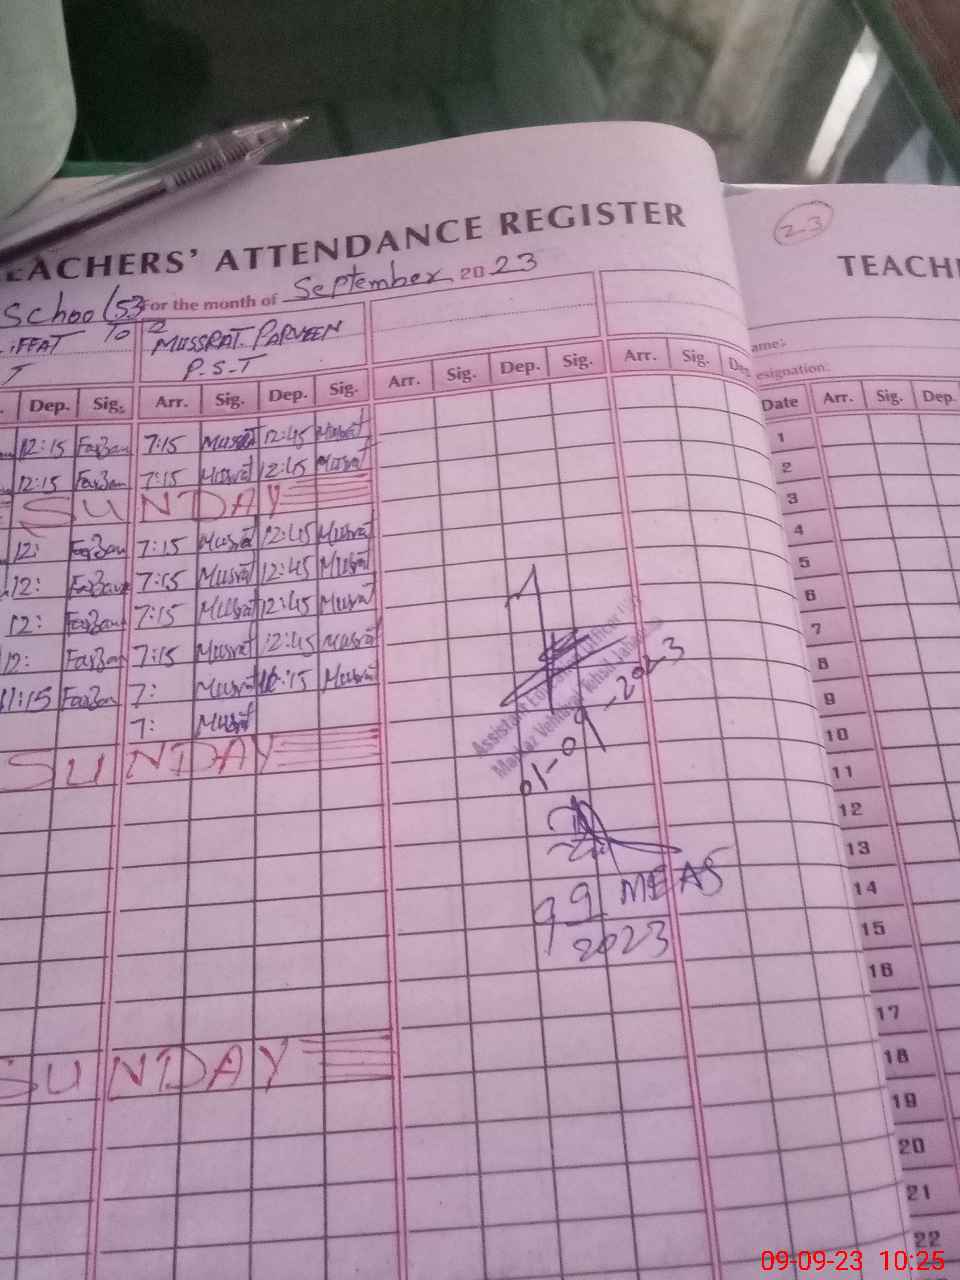 TEACHERS' ATTENDANCE REGISTER
School (53 For the month of September 2023
IFFAT TO 2 MUSSRAT PARVEEN
T P.S.T
Dep. Sig. Arr. Sig. Dep. Sig. Arr. Sig. Dep. Sig. Arr. Sig. Dep.
12:15 7:15 Mussrat 12:45 Musrat
12:15 7:15 Musrat 12:45 Musrat
SUNDAY
12: 7:15 Musrat 12:45 Musrat
12: 7:15 Musrat 12:45 Musrat
12: 7:15 Musrat 12:45 Musrat
12: 7:15 Musrat 12:45 Musrat
11:15 7: Musrat Musrat
7: Musrat
SUNDAY
SUNDAY
Assistant
Markaz Tehsil
01-09-2023
MEAS
9
2023
23
TEACH
ame:
esignation:
Date Arr. Sig. Dep.
1
2
3
4
5
6
7
8
9
10
11
12
13
14
15
16
17
18
19
20
21
22
09-09-23 10:25